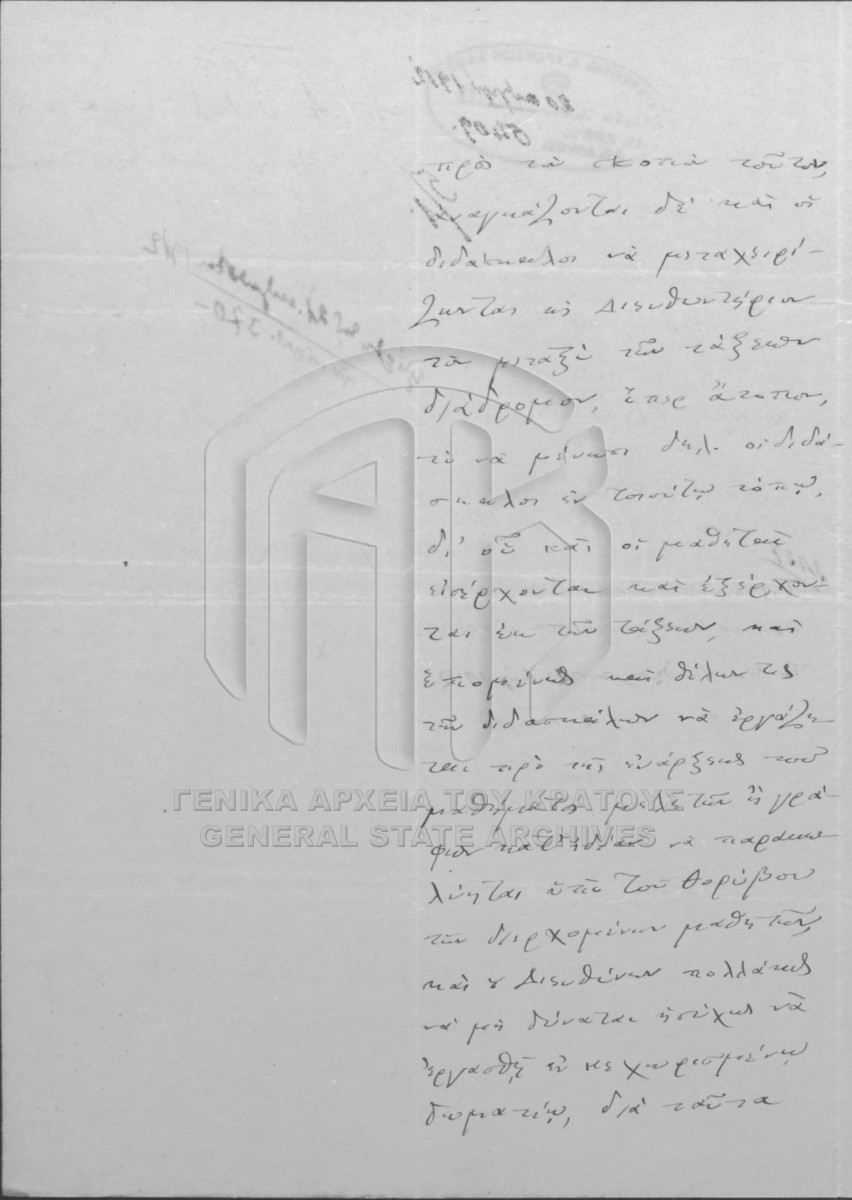 πρὸς τὸν σκοπὸν τοῦτον,
ἀναγκάζονται δὲ καὶ οἱ
διδάσκαλοι νὰ μεταχειρί-
ζωνται ὡς Διευθυντήριον
τὸν μεταξὺ τῶν τάξεων
διάδρομον, ὅπερ ἄτοπον,
τὸ νὰ μένωσι δηλ. οἱ διδά-
σκαλοι ἐν τοιούτῳ τόπῳ,
δι' οὗ καὶ οἱ μαθηταὶ
εἰσέρχονται καὶ ἐξέρχον-
ται ἐκ τῶν τάξεων, καὶ
ἑπομένως καὶ θέλων τις
τῶν διδασκάλων νὰ ἐργάζη-
ται πρὸ τῆς ἐνάρξεως τοῦ
μαθήματος μελετῶν ἢ γρά-
φων κατ' ἰδίαν νὰ παρακω-
λύηται ὑπὸ τοῦ θορύβου
τῶν διερχομένων μαθητῶν,
καὶ ὁ Διευθύνων πολλάκις
νὰ μὴ δύναται ἡσύχως νὰ
ἐργασθῇ ἐν κεχωρισμένῳ
δωματίῳ, διὰ ταῦτα
ΓΕΝΙΚΑ ΑΡΧΕΙΑ ΤΟΥ ΚΡΑΤΟΥΣ
GENERAL STATE ARCHIVES